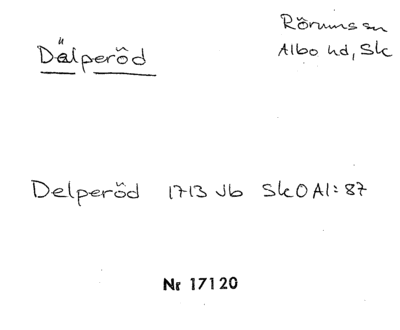 Dälperöd
Rörums sn
Albo hd, Sk
Delperöd 1713 Jb SkOAl:87
Nr 17120